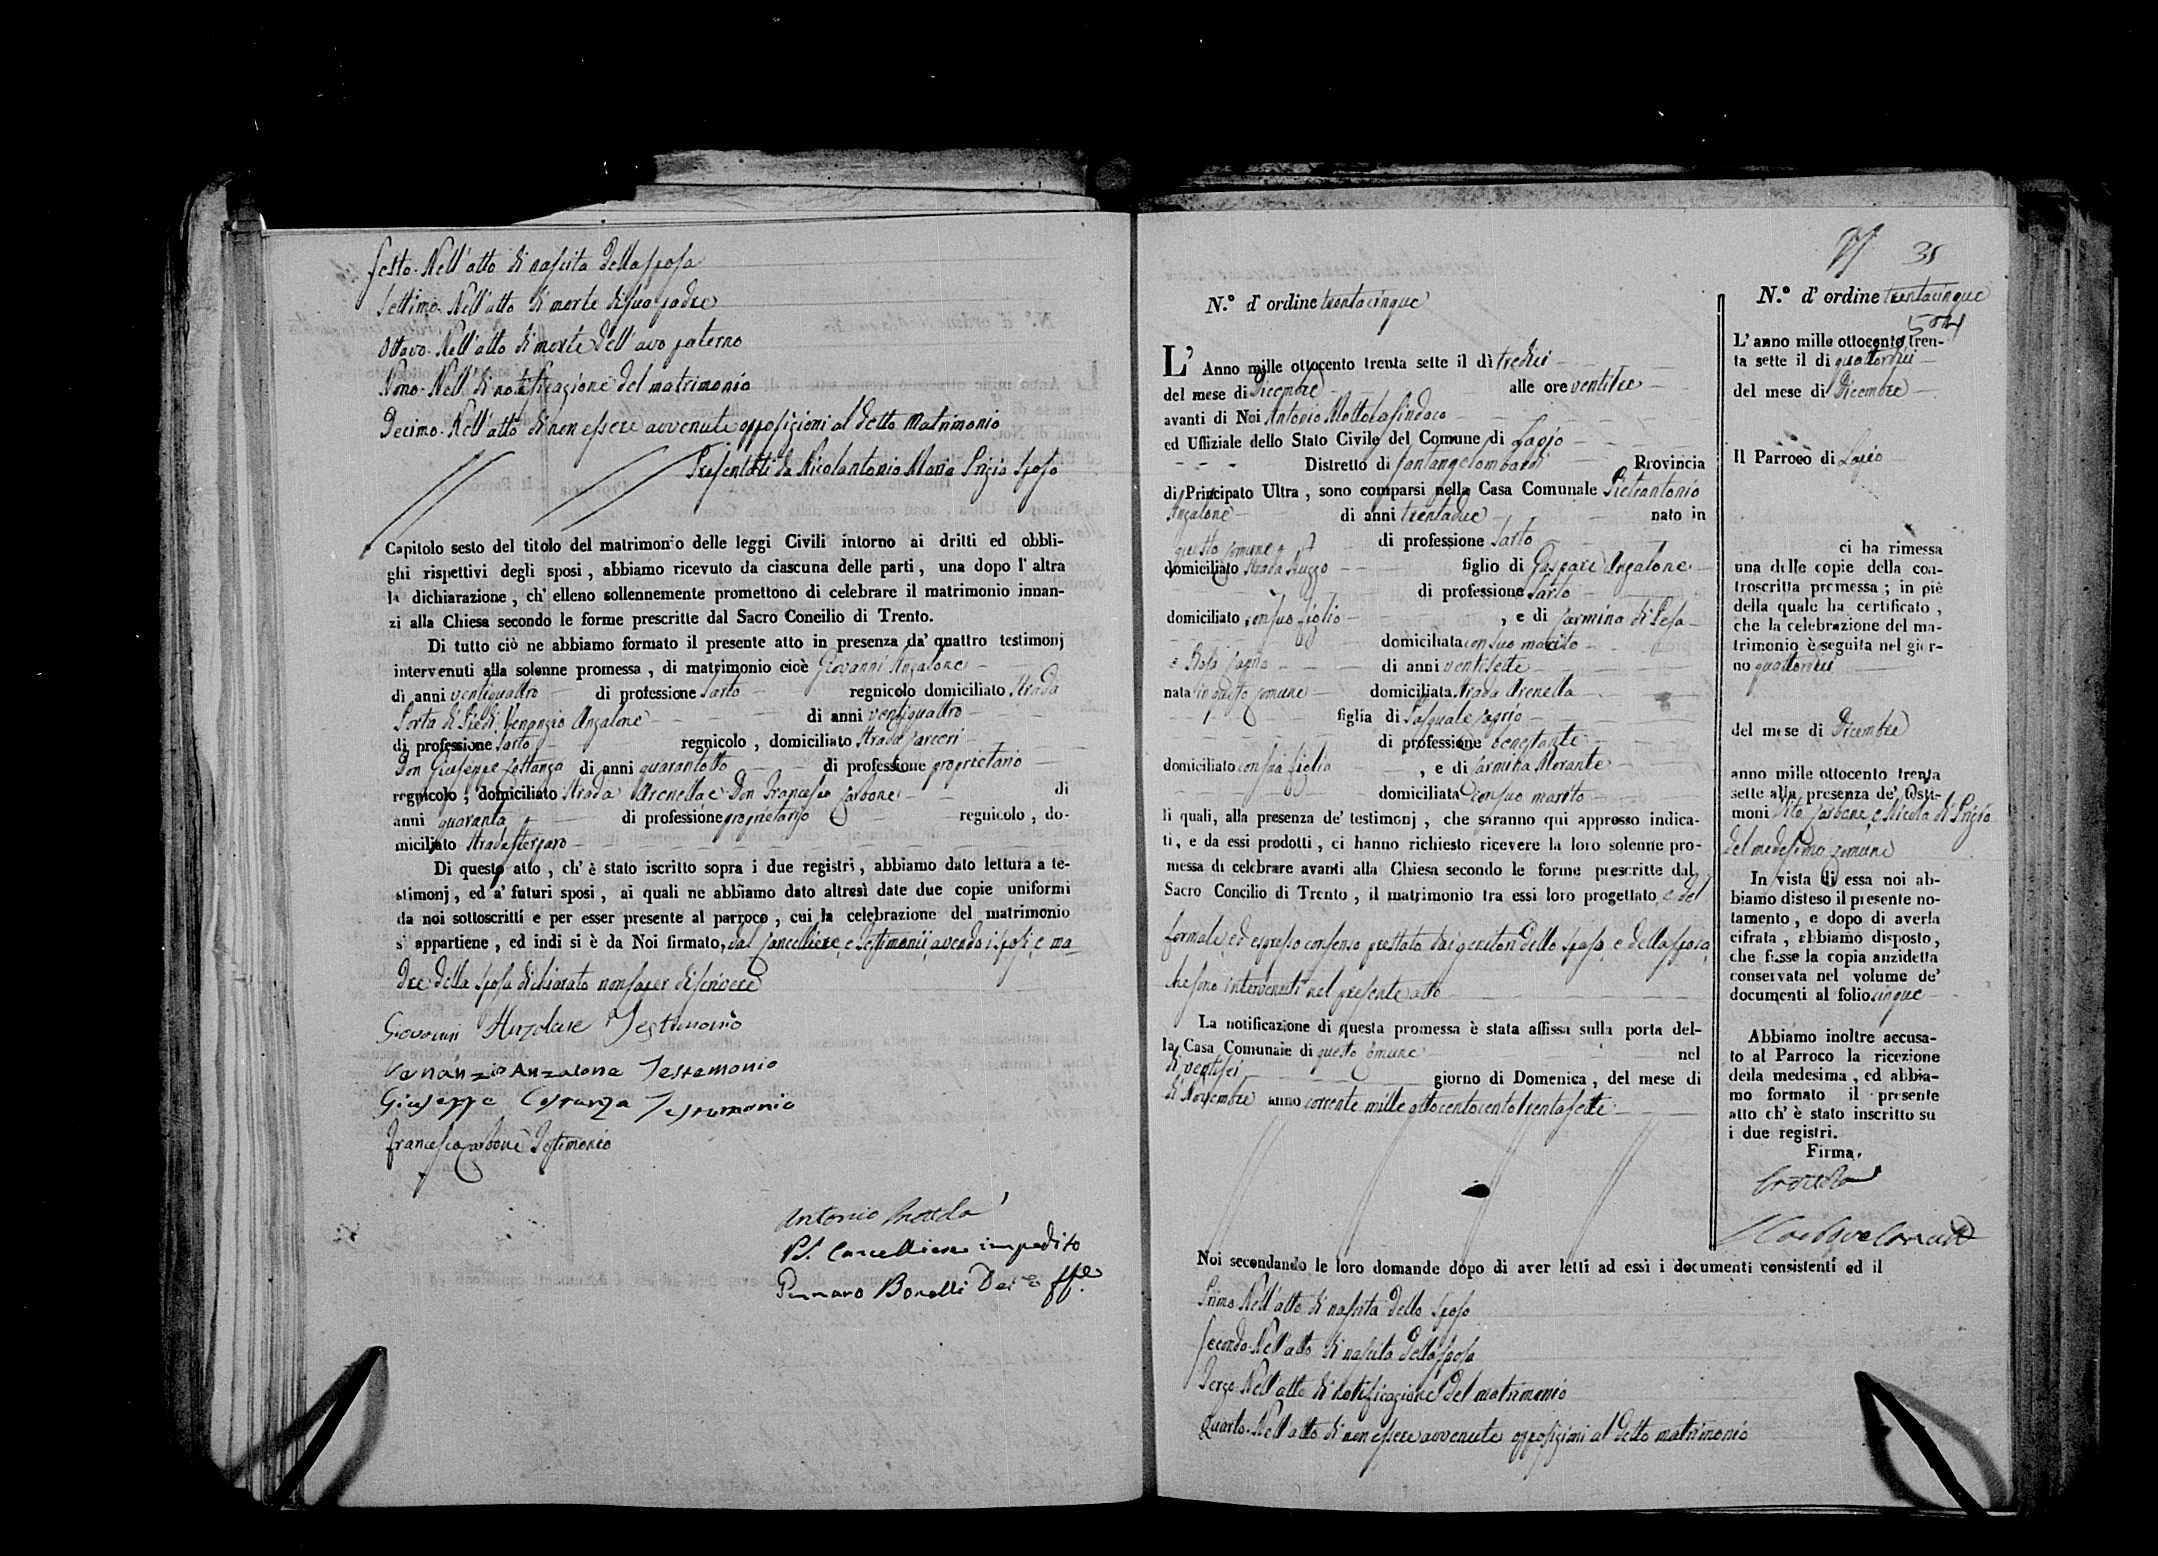 Sesto. Nell'atto di nascita della sposa
Settimo. Nell'atto di morte di suo padre
Ottavo. Nell'atto di morte dell'avo paterno
Nono. Nell'di notificazione del matrimonio
Decimo. Nell'atto di non essere avvenute opposizioni al detto matrimonio
Presentati da Nicolantonio Maria Prizio sposo
Capitolo sesto del titolo del matrimonio delle leggi Civili intorno ai dritti ed obbli-
ghi rispettivi degli sposi, abbiamo ricevuto da ciascuna delle parti, una dopo l'altra
la dichiarazione, ch'elleno sollennemente promettono di celebrare il matrimonio innan-
zi alla Chiesa secondo le forme prescritte dal Sacro Concilio di Trento.
Di tutto ciò ne abbiamo formato il presente atto in presenza da' quattro testimonj
intervenuti alla solenne promessa, di matrimonio cioè Giovanni Anzalone
di anni ventiquattro di professione sarto regnicolo domiciliato Strada
Porta di Piedi. Venanzio Anzalone di anni ventiquattro
di professione sarto regnicolo, domiciliato Strada Carceri
Don Giuseppe Costanza di anni quarantotto di professione proprietario
regnicolo, domiciliato Strada Arenella e Don Francesco Carbone di
anni quaranta di professione proprietario regnicolo, do-
miciliato Strada
Di questo atto, ch'è stato iscritto sopra i due registri, abbiamo dato lettura a te-
stimonj, ed a' futuri sposi, ai quali ne abbiamo dato altresì date due copie uniformi
da noi sottoscritti e per esser presente al parroco, cui la celebrazione del matrimonio
s'appartiene, ed indi si è da Noi firmato, dal Cancelliere, e testimonii avendo i sposi, e ma-
dre della sposa dichiarato non saper di scrivere
Giovanni Anzolone Testimonio
Venanzio Anzalone Testemonio
Giuseppe Costanza Testimonio
Francesco Carbone Testimonio
Antonio
Pel Cancelliere impedito
Gennaro Bonelli
35
N.° d'ordine trentacinque
L'Anno mille ottocento trenta sette il dì tredici
del mese di Dicembre alle ore ventitre
avanti di Noi Antonio Mottola sindaco
ed Uffiziale dello Stato Civile del Comune di Lapio
Distretto di Santangelombardi Provincia
di Principato Ultra, sono comparsi nella Casa Comunale Pietrantonio
Anzalone di anni trentadue nato in
questo comune di professione sarto
domiciliato Strada figlio di Gaspare Anzalone
di professione sarto
domiciliato con suo figlio, e di Carmina di Pesa
domiciliata con suo marito
e Rosa di anni ventisette
nata in questo comune domiciliata Strada Arenella
figlia di Pasquale
di professione benestante
domiciliato con sua figlia, e di Carmina Morante
domiciliata con suo marito
li quali, alla presenza de' testimonj, che saranno qui appresso indica-
ti, e da essi prodotti, ci hanno richiesto ricevere la loro solenne pro-
messa di celebrare avanti alla Chiesa secondo le forme prescritte dal
Sacro Concilio di Trento, il matrimonio tra essi loro progettato e del
formale, ed espresso consenso prestato dai genitori dello sposo, e della sposa,
che sono intervenuti nel presente atto
La notificazione di questa promessa è stata affissa sulla porta del-
la Casa Comunale di questo comune nel
dì ventisei giorno di Domenica, del mese di
di Novembre anno corrente mille ottocentocento trentasette
Noi secondando le loro domande dopo di aver letti ad essi i documenti consistenti ed il
Primo. Nell'atto di nascita dello sposo
Secondo. Nell'atto di nascita della sposa
Terzo. Nell'atto di notificazione del matrimonio
Quarto. Nell'atto di non essere avvenute opposizioni al detto matrimonio
N.° d'ordine trentacinque
L'anno mille ottocento tren-
ta sette il dì quattordici
del mese di Dicembre
Il Parroco di Lapio
ci ha rimessa
una delle copie della con-
troscritta promessa; in piè
della quale ha certificato,
che la celebrazione del ma-
trimonio è seguita nel gior-
no quattordici
del mese di Dicembre
anno mille ottocento trenta
sette alla presenza de' testi-
moni Vito Carbone, e Nicola di Prizio
del medesimo comune
In vista di essa noi ab-
biamo disteso il presente no-
tamento, e dopo di averla
cifrata, abbiamo disposto,
che fosse la copia anzidetta
conservata nel volume de'
documenti al folio cinque
Abbiamo inoltre accusa-
to al Parroco la ricezione
della medesima, ed abbia-
mo formato il presente
atto ch'è stato inscritto su
i due registri.
Firma.